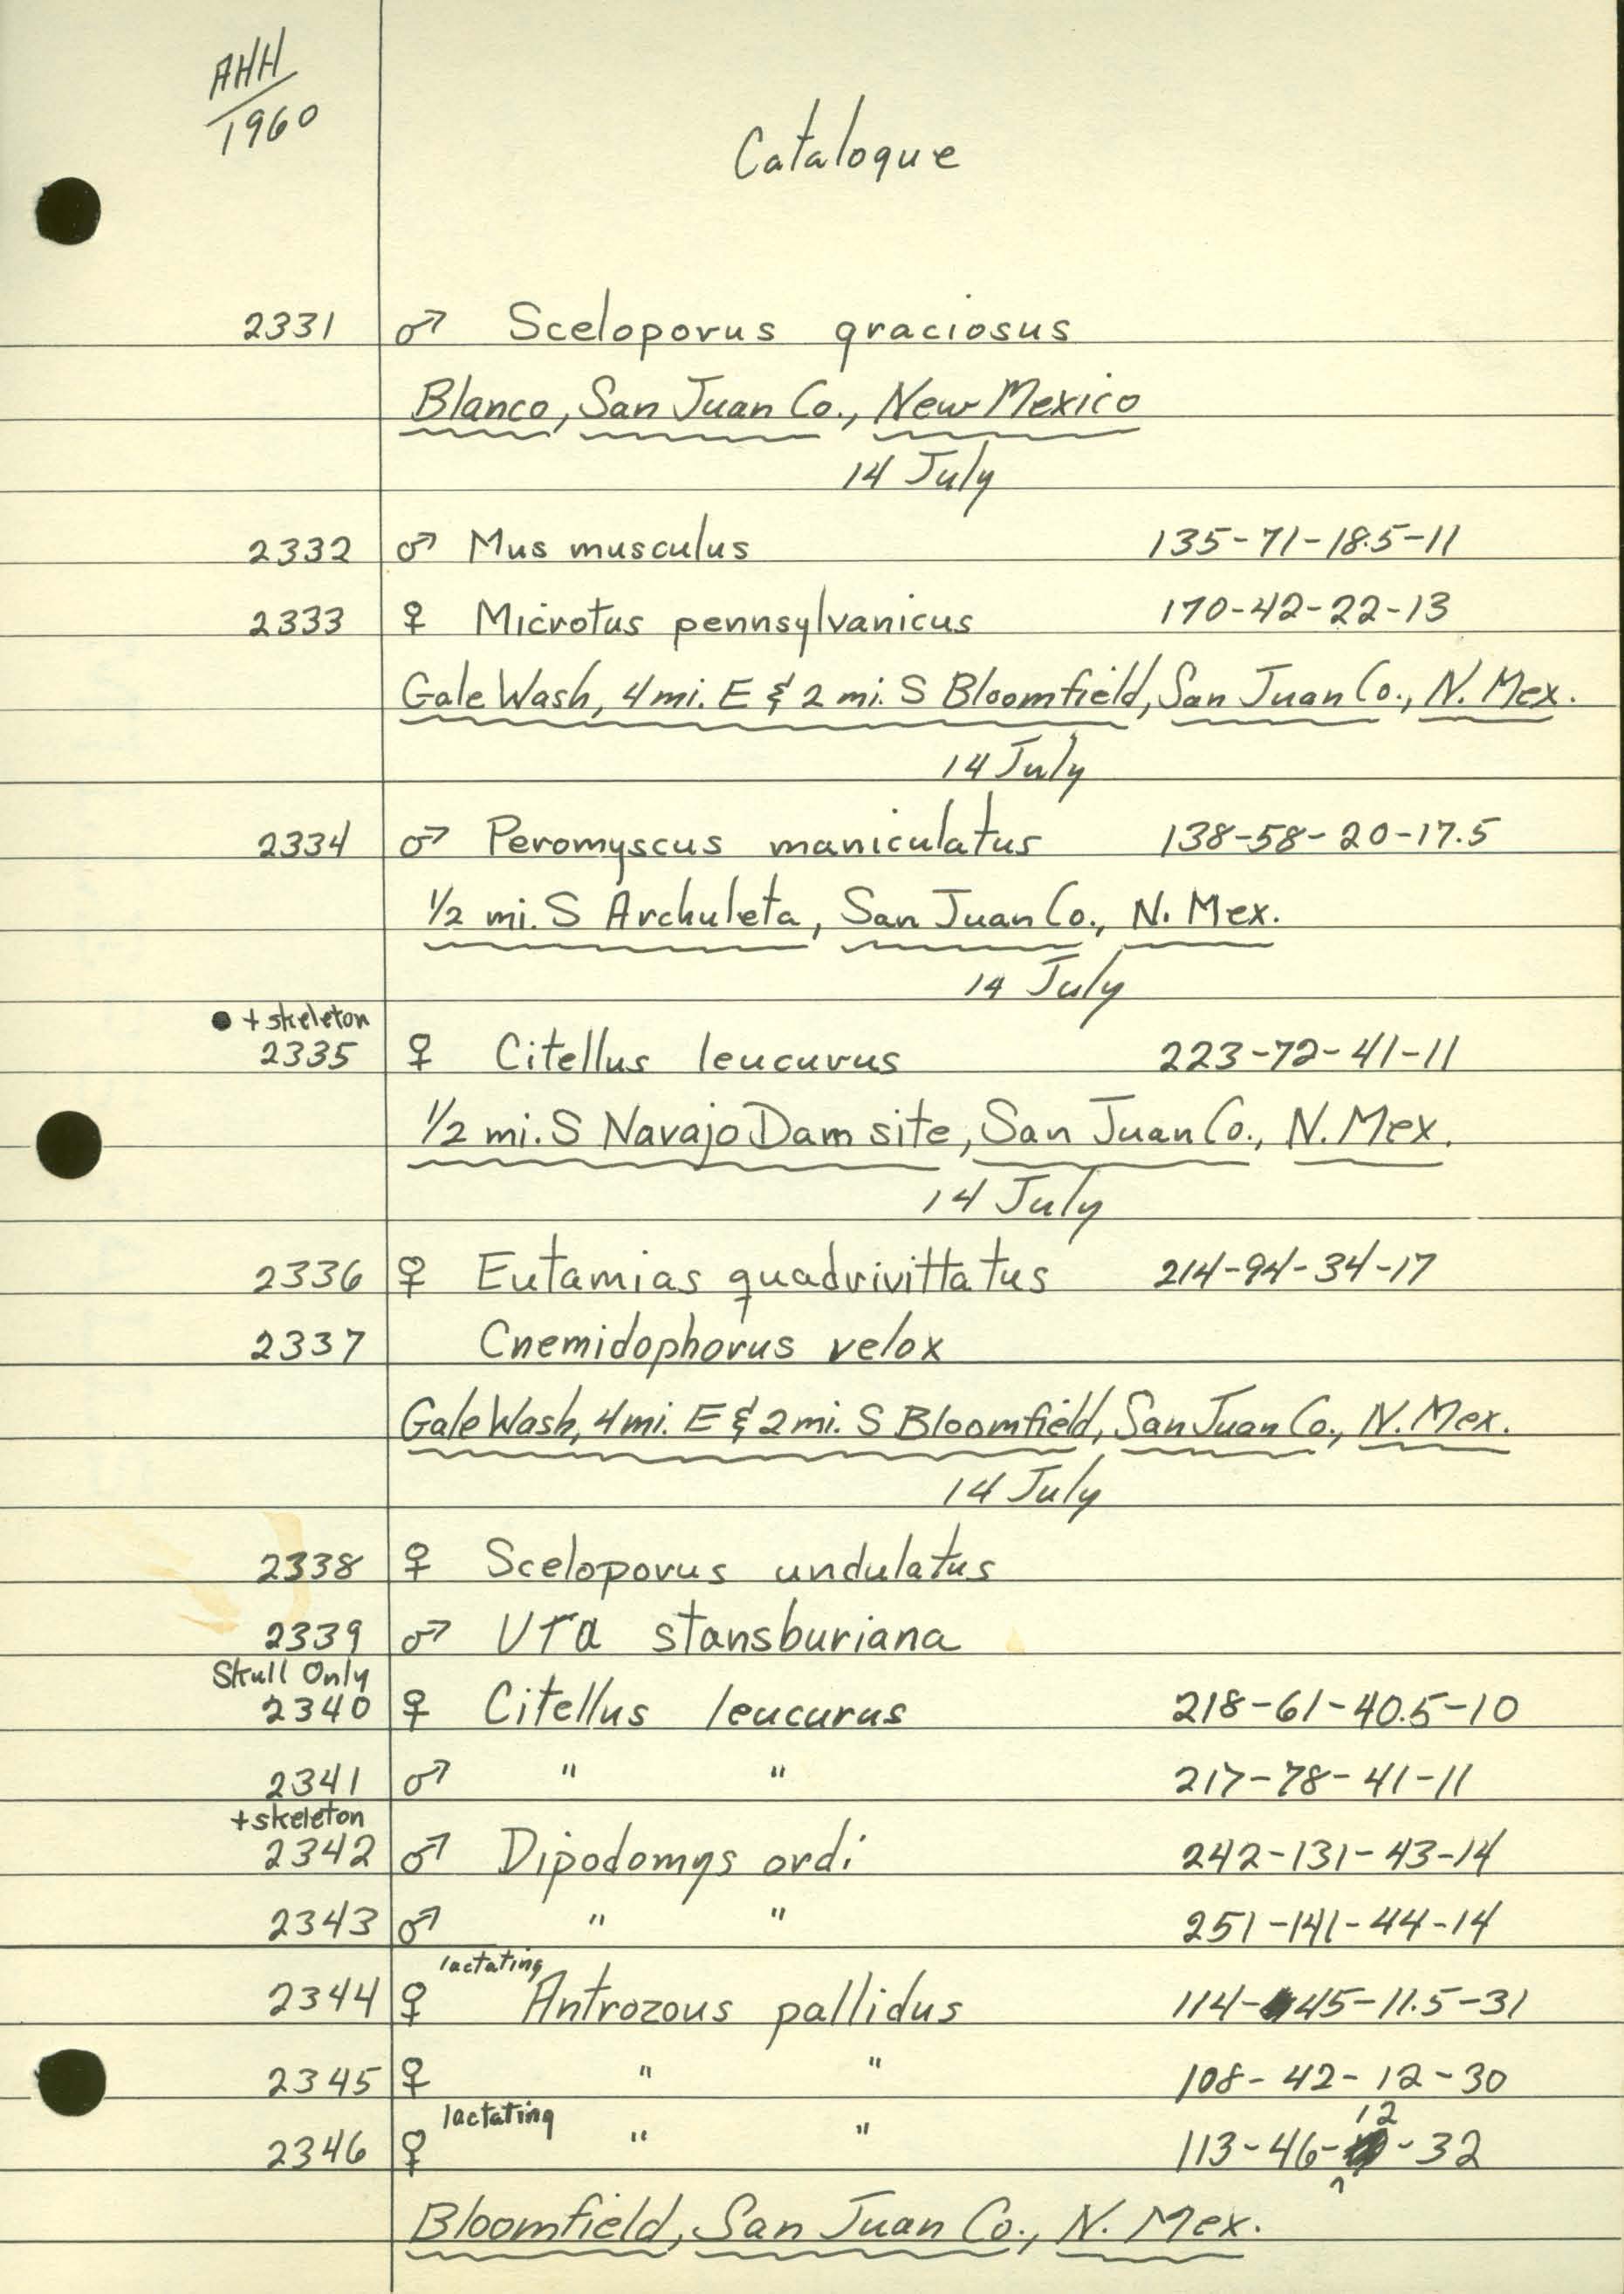 AHH
1960
Catalogue
2331 ♂ Sceloporus graciosus
Blanco, San Juan Co., New Mexico
14 July
2332 ♂ Mus musculus 135-71-18.5-11
2333 ♀ Microtus pennsylvanicus 170-42-22-13
Gale Wash, 4 mi. E & 2 mi. S Bloomfield, San Juan Co., N. Mex.
14 July
2334 ♂ Peromyscus maniculatus 138-58-20-17.5
1/2 mi. S Archuleta, San Juan Co., N. Mex.
14 July
+ skeleton
2335 ♀ Citellus leucurus 223-72-41-11
1/2 mi. S Navajo Dam site, San Juan Co., N. Mex.
14 July
2336 ♀ Eutamias quadrivittatus 214-94-34-17
2337 Cnemidophorus velox
Gale Wash, 4 mi. E & 2 mi. S Bloomfield, San Juan Co., N. Mex.
14 July
2338 ♀ Sceloporus undulatus
2339 ♂ Uta stansburiana
Skull Only
2340 ♀ Citellus leucurus 218-61-40.5-10
2341 ♂ " " 217-78-41-11
+ skeleton
2342 ♂ Dipodomys ordi 242-131-43-14
2343 ♂ " " 251-141-44-14
lactating
2344 ♀ Antrozous pallidus 114-45-11.5-31
2345 ♀ " " 108-42-12-30
lactating 12
2346 ♀ " " 113-46- -32
Bloomfield, San Juan Co., N. Mex.